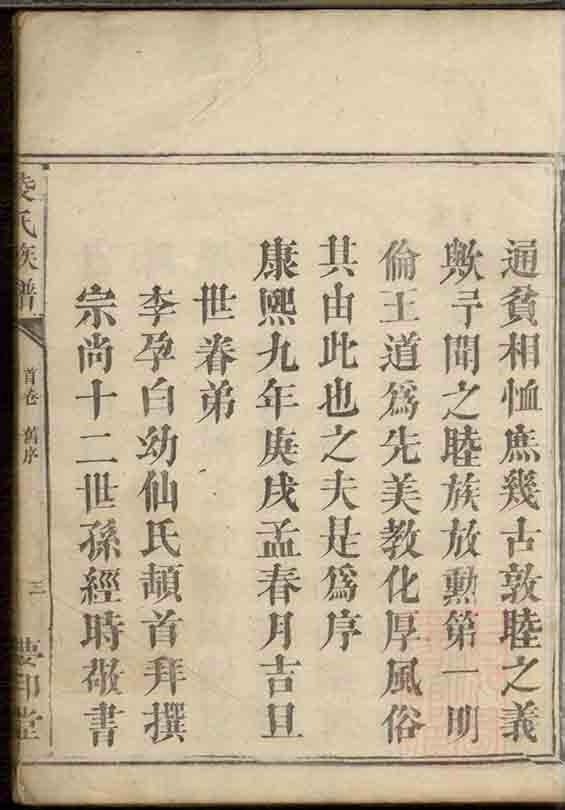 通貧相恤庶幾古敦睦之義
歟予聞之睦族放勳第一明
倫王道爲先美教化厚風俗
其由此也之夫是爲序
康熙九年庚戌孟春月吉旦
世眷弟
李孕白幼仙氏頓首拜撰
宗尚十二世孫經時敬書
氏族譜
首卷 舊序
三
堂